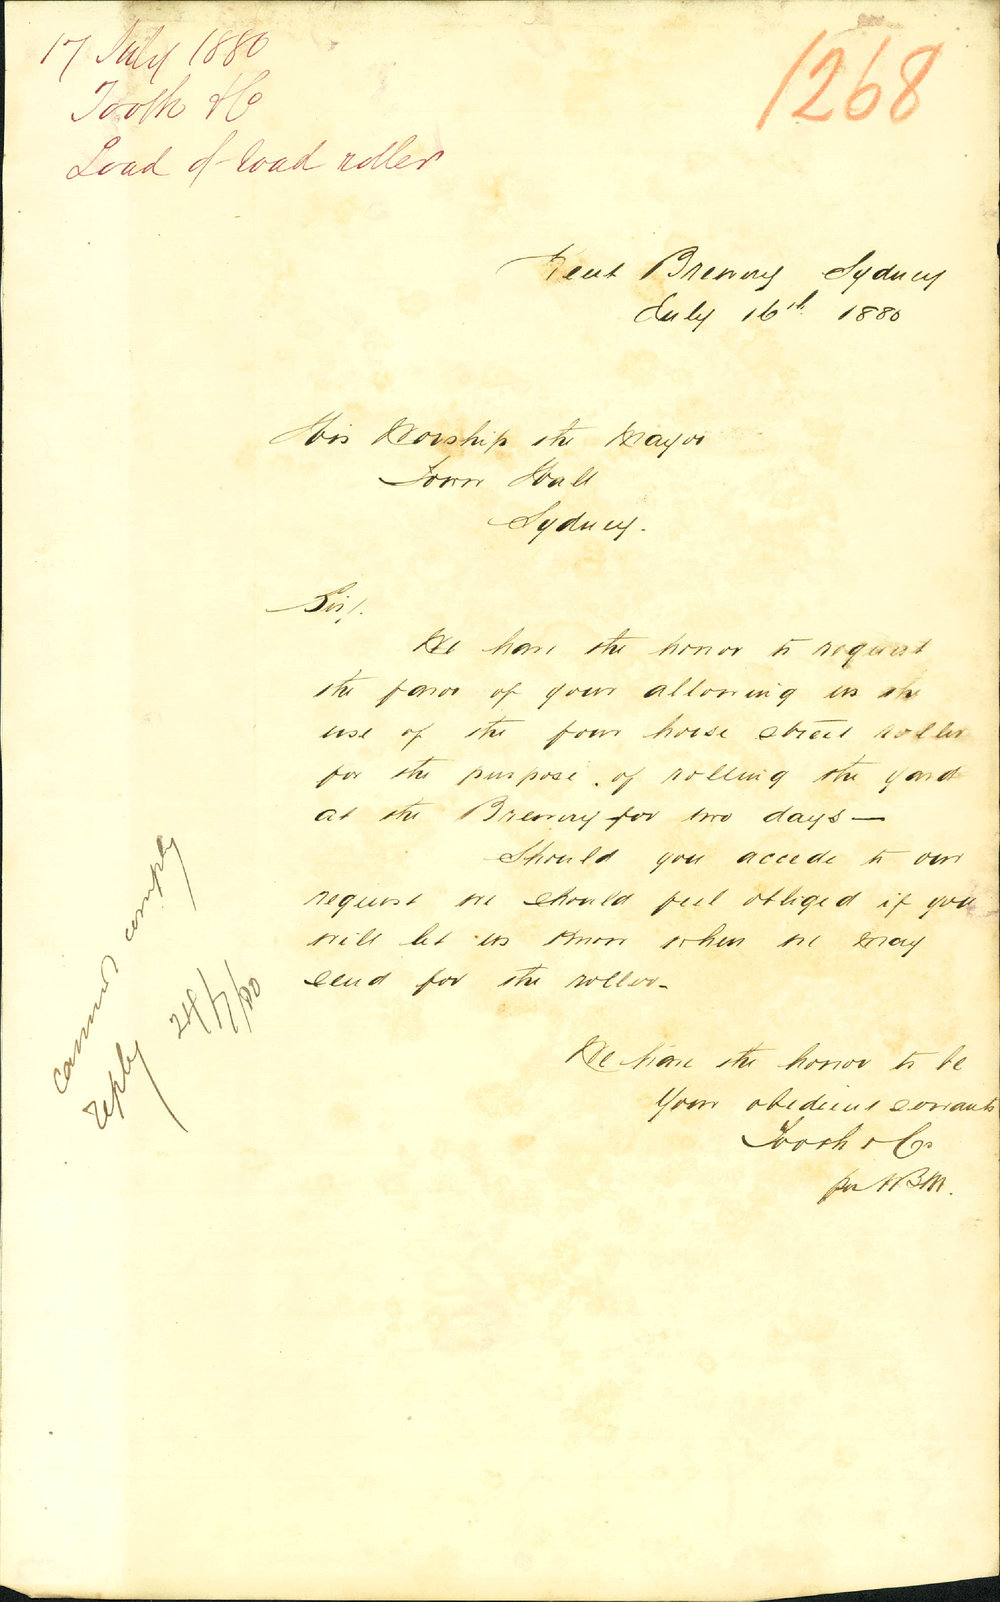 17 July 1880
Tooth & Co
Loan of road roller
1268
Kent Brewery Sydney
July 16th 1880
His Worship the Mayor
Town Hall
Sydney.
Sir/.
We have the honor to request
the favor of your allowing us the
use of the four horse street roller
for the purpose of rolling the yard
at the Brewery for two days —
Should you accede to our
request we should feel obliged if you
will let us know when we may
send for the roller -
We have the honor to be
Your obedient servants
Tooth & Co
per
cannot comply
reply
24/7/80